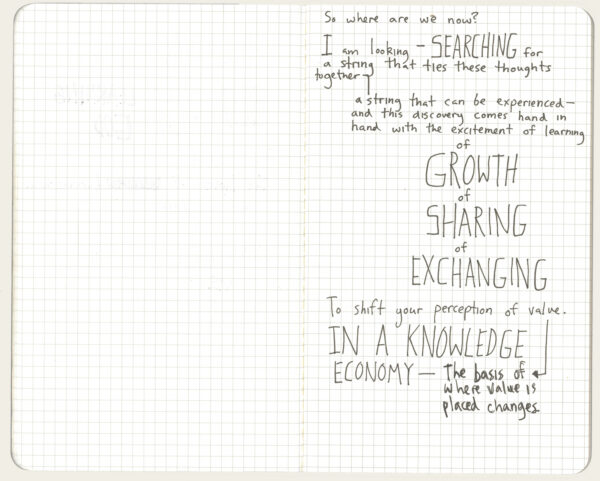 So where are we now?
I am looking – SEARCHING for
a string that ties these thoughts
together
a string that can be experienced—
and this discovery comes hand in
hand with the excitement of learning
of
GROWTH
of
SHARING
of
EXCHANGING
To shift your perception of value.
IN A KNOWLEDGE
ECONOMY — The basis of
where value is
placed changes.